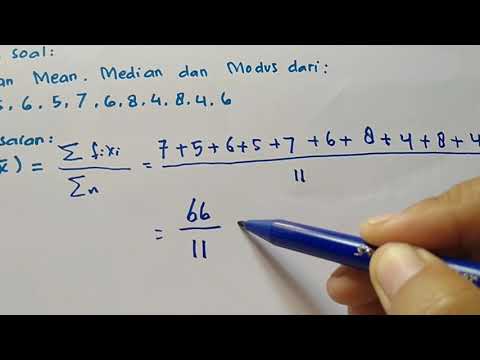 soal:
an Mean. Median dan Modus dari:
5, 6. 5, 7, 6, 8, 4. 8. 4. 6
x̄) = Σ fixi / Σn = 7+5+6+5+7+6+8+4+8+4 / 11
= 66 / 11